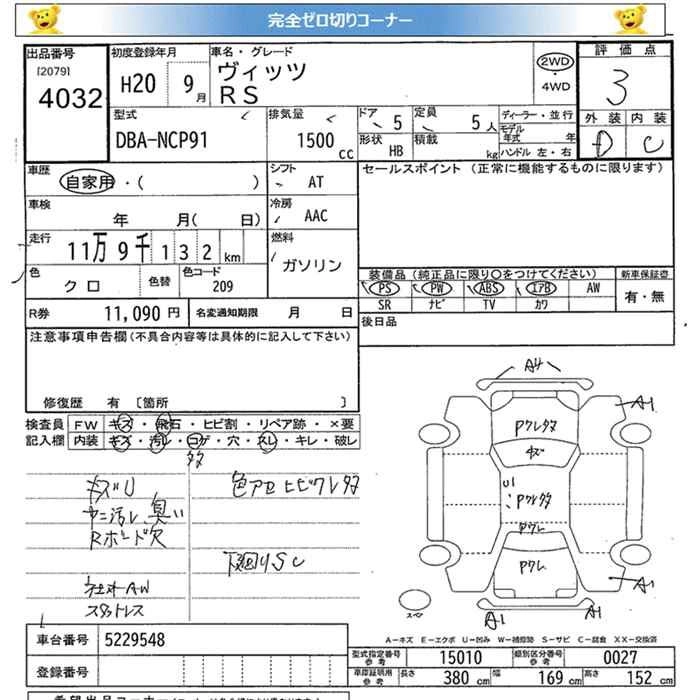 完全ゼロ切りコーナー
出品番号 [2079] 4032
初度登録年月 H20 9月
車名・グレード ヴィッツ RS
2WD・4WD
評価点 3
型式 DBA-NCP91
排気量 1500cc
ドア 5
定員 5人
形状 HB
積載 kg
ディーラー・並行
モデル年式 年
ハンドル 左・右
外装 D
内装 C
車歴 自家用・( )
シフト AT
セールスポイント (正常に機能するものに限ります)
車検 年 月( 日)
冷房 AAC
走行 11万9千132km
燃料 ガソリン
色 クロ
色替
色コード 209
装備品 (純正品に限り○をつけてください)
新車保証書
PS PW ABS エアB AW
有・無
SR ナビ TV カワ
R券 11,090円
名変通知期限 月 日
後日品
注意事項申告欄(不具合内容等は具体的に記入して下さい)
修復歴 有 [箇所 ]
検査員記入欄
FW キズ・飛石・ヒビ割・リペア跡・×要
内装 キズ・汚レ・コゲ・穴・スレ・キレ・破レ
キズU
色アセ ヒビワレタタ
ヤニ汚レ 臭い
Rボード欠
下廻りSC
社外AW
スタットレス
A4
A1
A1
A1
A1
A1
スペア
A-キズ E-エクボ U-凹み W-補修跡 S-サビ C-腐食 XX-交換済
車台番号 5229548
登録番号
型式指定番号 参考 15010
類別区分番号 参考 0027
車庫証明用 参考 長さ 380cm 幅 169cm 高さ 152cm